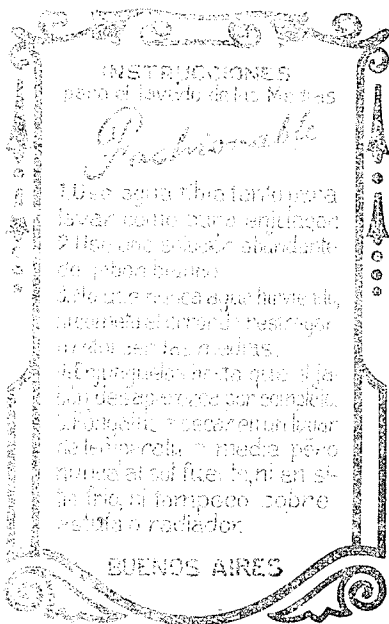 INSTRUCCIONES
para el lavado de las Medias
Fashionable
1. Use agua tibia tanto para
lavar como para enjuagar.
2. Haga una solución abundante
de jabón
3. No use nunca agua hirviendo,
ni
las medias.
4. Enjuáguelas hasta que el ja-
bón desaparezca por completo.
5. en un lugar
de temperatura media pero
nunca al sol fuerte, ni en si-
tio frío, ni tampoco sobre
estufa o radiador.
BUENOS AIRES